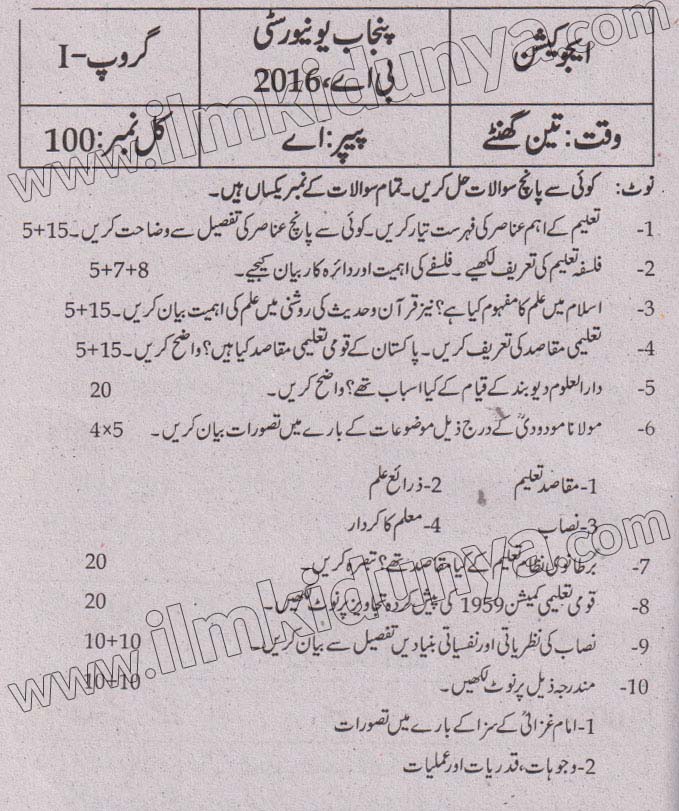 ایجوکیشن
پنجاب یونیورسٹی
بی اے، 2016
گروپ-I
وقت: تین گھنٹے
پیپر: اے
کل نمبر: 100
نوٹ: کوئی سے پانچ سوالات حل کریں۔ تمام سوالات کے نمبر یکساں ہیں۔
1- تعلیم کے اہم عناصر کی فہرست تیار کریں۔ کوئی سے پانچ عناصر کی تفصیل سے وضاحت کریں۔ 5+15
2- فلسفہ تعلیم کی تعریف لکھیے۔ فلسفے کی اہمیت اور دائرہ کار بیان کیجیے۔ 5+7+8
3- اسلام میں علم کا مفہوم کیا ہے؟ نیز قرآن و حدیث کی روشنی میں علم کی اہمیت بیان کریں۔ 5+15
4- تعلیمی مقاصد کی تعریف کریں۔ پاکستان کے قومی تعلیمی مقاصد کیا ہیں؟ واضح کریں۔ 5+15
5- دارالعلوم دیوبند کے قیام کے کیا اسباب تھے؟ واضح کریں۔ 20
6- مولانا مودودیؒ کے درج ذیل موضوعات کے بارے میں تصورات بیان کریں۔ 4×5
1- مقاصد تعلیم 2- ذرائع علم
3- نصاب 4- معلم کا کردار
7- برطانوی نظام تعلیم کے کیا مقاصد تھے؟ تبصرہ کریں۔ 20
8- قومی تعلیمی کمیشن 1959 کی پیش کردہ تجاویز پر نوٹ لکھیں۔ 20
9- نصاب کی نظریاتی اور نفسیاتی بنیادیں تفصیل سے بیان کریں۔ 10+10
10- مندرجہ ذیل پر نوٹ لکھیں۔ 10+10
1- امام غزالیؒ کے سزا کے بارے میں تصورات
2- وجوہات، قدریات اور عملیات
www.ilmkidunya.com
www.ilmkidunya.com